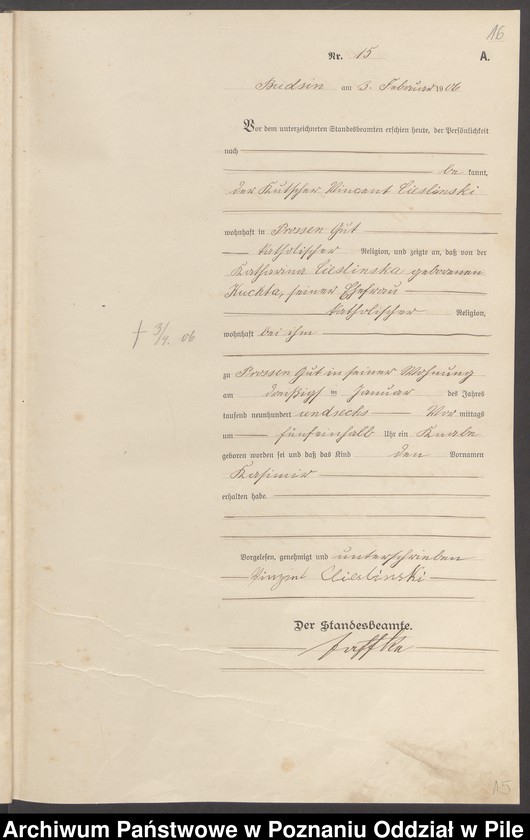 16
Nr. 15
A.
Budsin am 3. Februar 1906
Vor dem unterzeichneten Standesbeamten erschien heute, der Persönlichkeit
nach
be kannt,
der Kutscher Vincent Cieslinski
wohnhaft in Prossen Gut
katholischer Religion, und zeigte an, daß von der
Katharina Cieslinska geborenen
Kuchta, seiner Ehefrau
katholischer Religion,
wohnhaft bei ihm
† 3/9. 06
zu Prossen Gut in seiner Wohnung
am dreißigsten Januar des Jahres
tausend neunhundert und sechs Vor mittags
um fünfeinhalb Uhr ein Knabe
geboren worden sei und daß das Kind den Vornamen
Kasimir
erhalten habe.
Vorgelesen, genehmigt und unterschrieben
Vinzent Cieslinski
Der Standesbeamte.
Jaffke
15
Archiwum Państwowe w Poznaniu Oddział w Pile